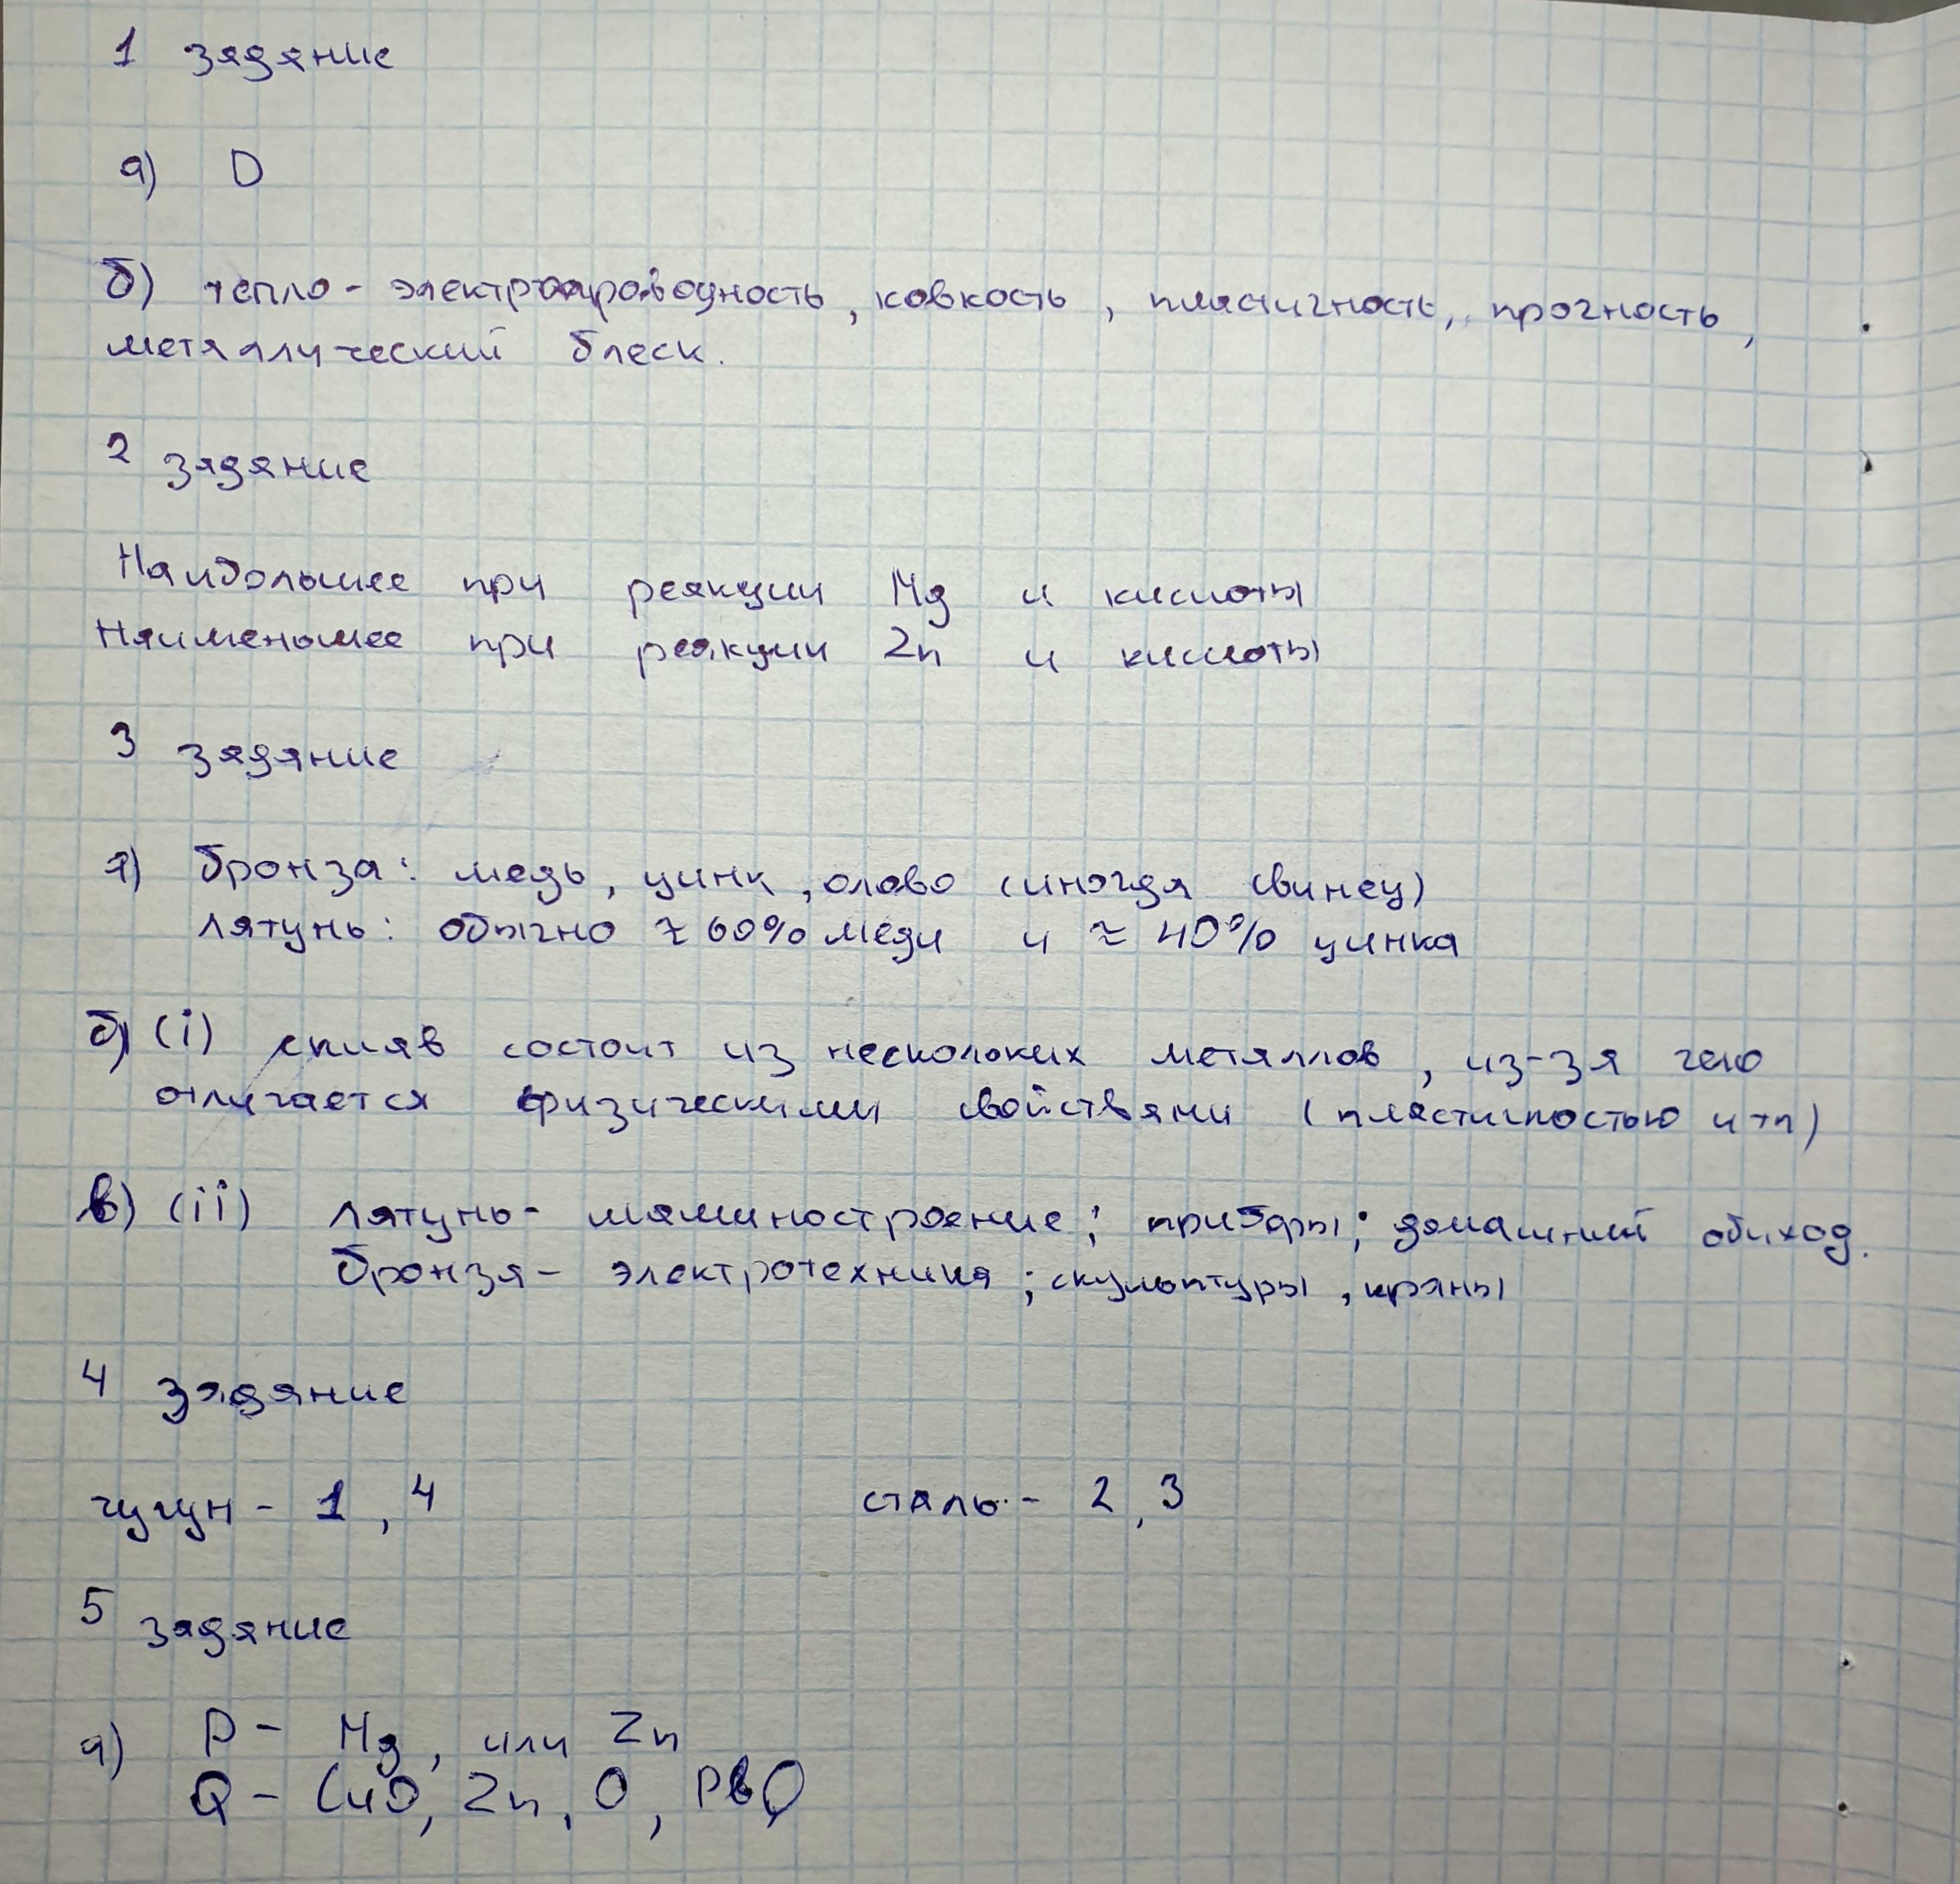 1 задание
а) D
б) тепло- электропроводность, ковкость, пластичность, прочность,
металлический блеск.
2 задание
Наибольшее при реакции Mg и кислоты
Наименьшее при реакции Zn и кислоты
3 задание
а) бронза: медь, цинк, олово (иногда свинец)
латунь: обычно ≈ 60% меди и ≈ 40% цинка
б) (i) сплав состоит из нескольких металлов, из-за чего
отличается физическими свойствами (пластичностью и тп)
в) (ii) латунь- машиностроение; приборы; домашний обиход.
бронза- электротехника; скульптуры, краны
4 задание
чугун- 1, 4 сталь- 2, 3
5 задание
а) P- Mg, или Zn
Q- CuO, Zn, O, PbO